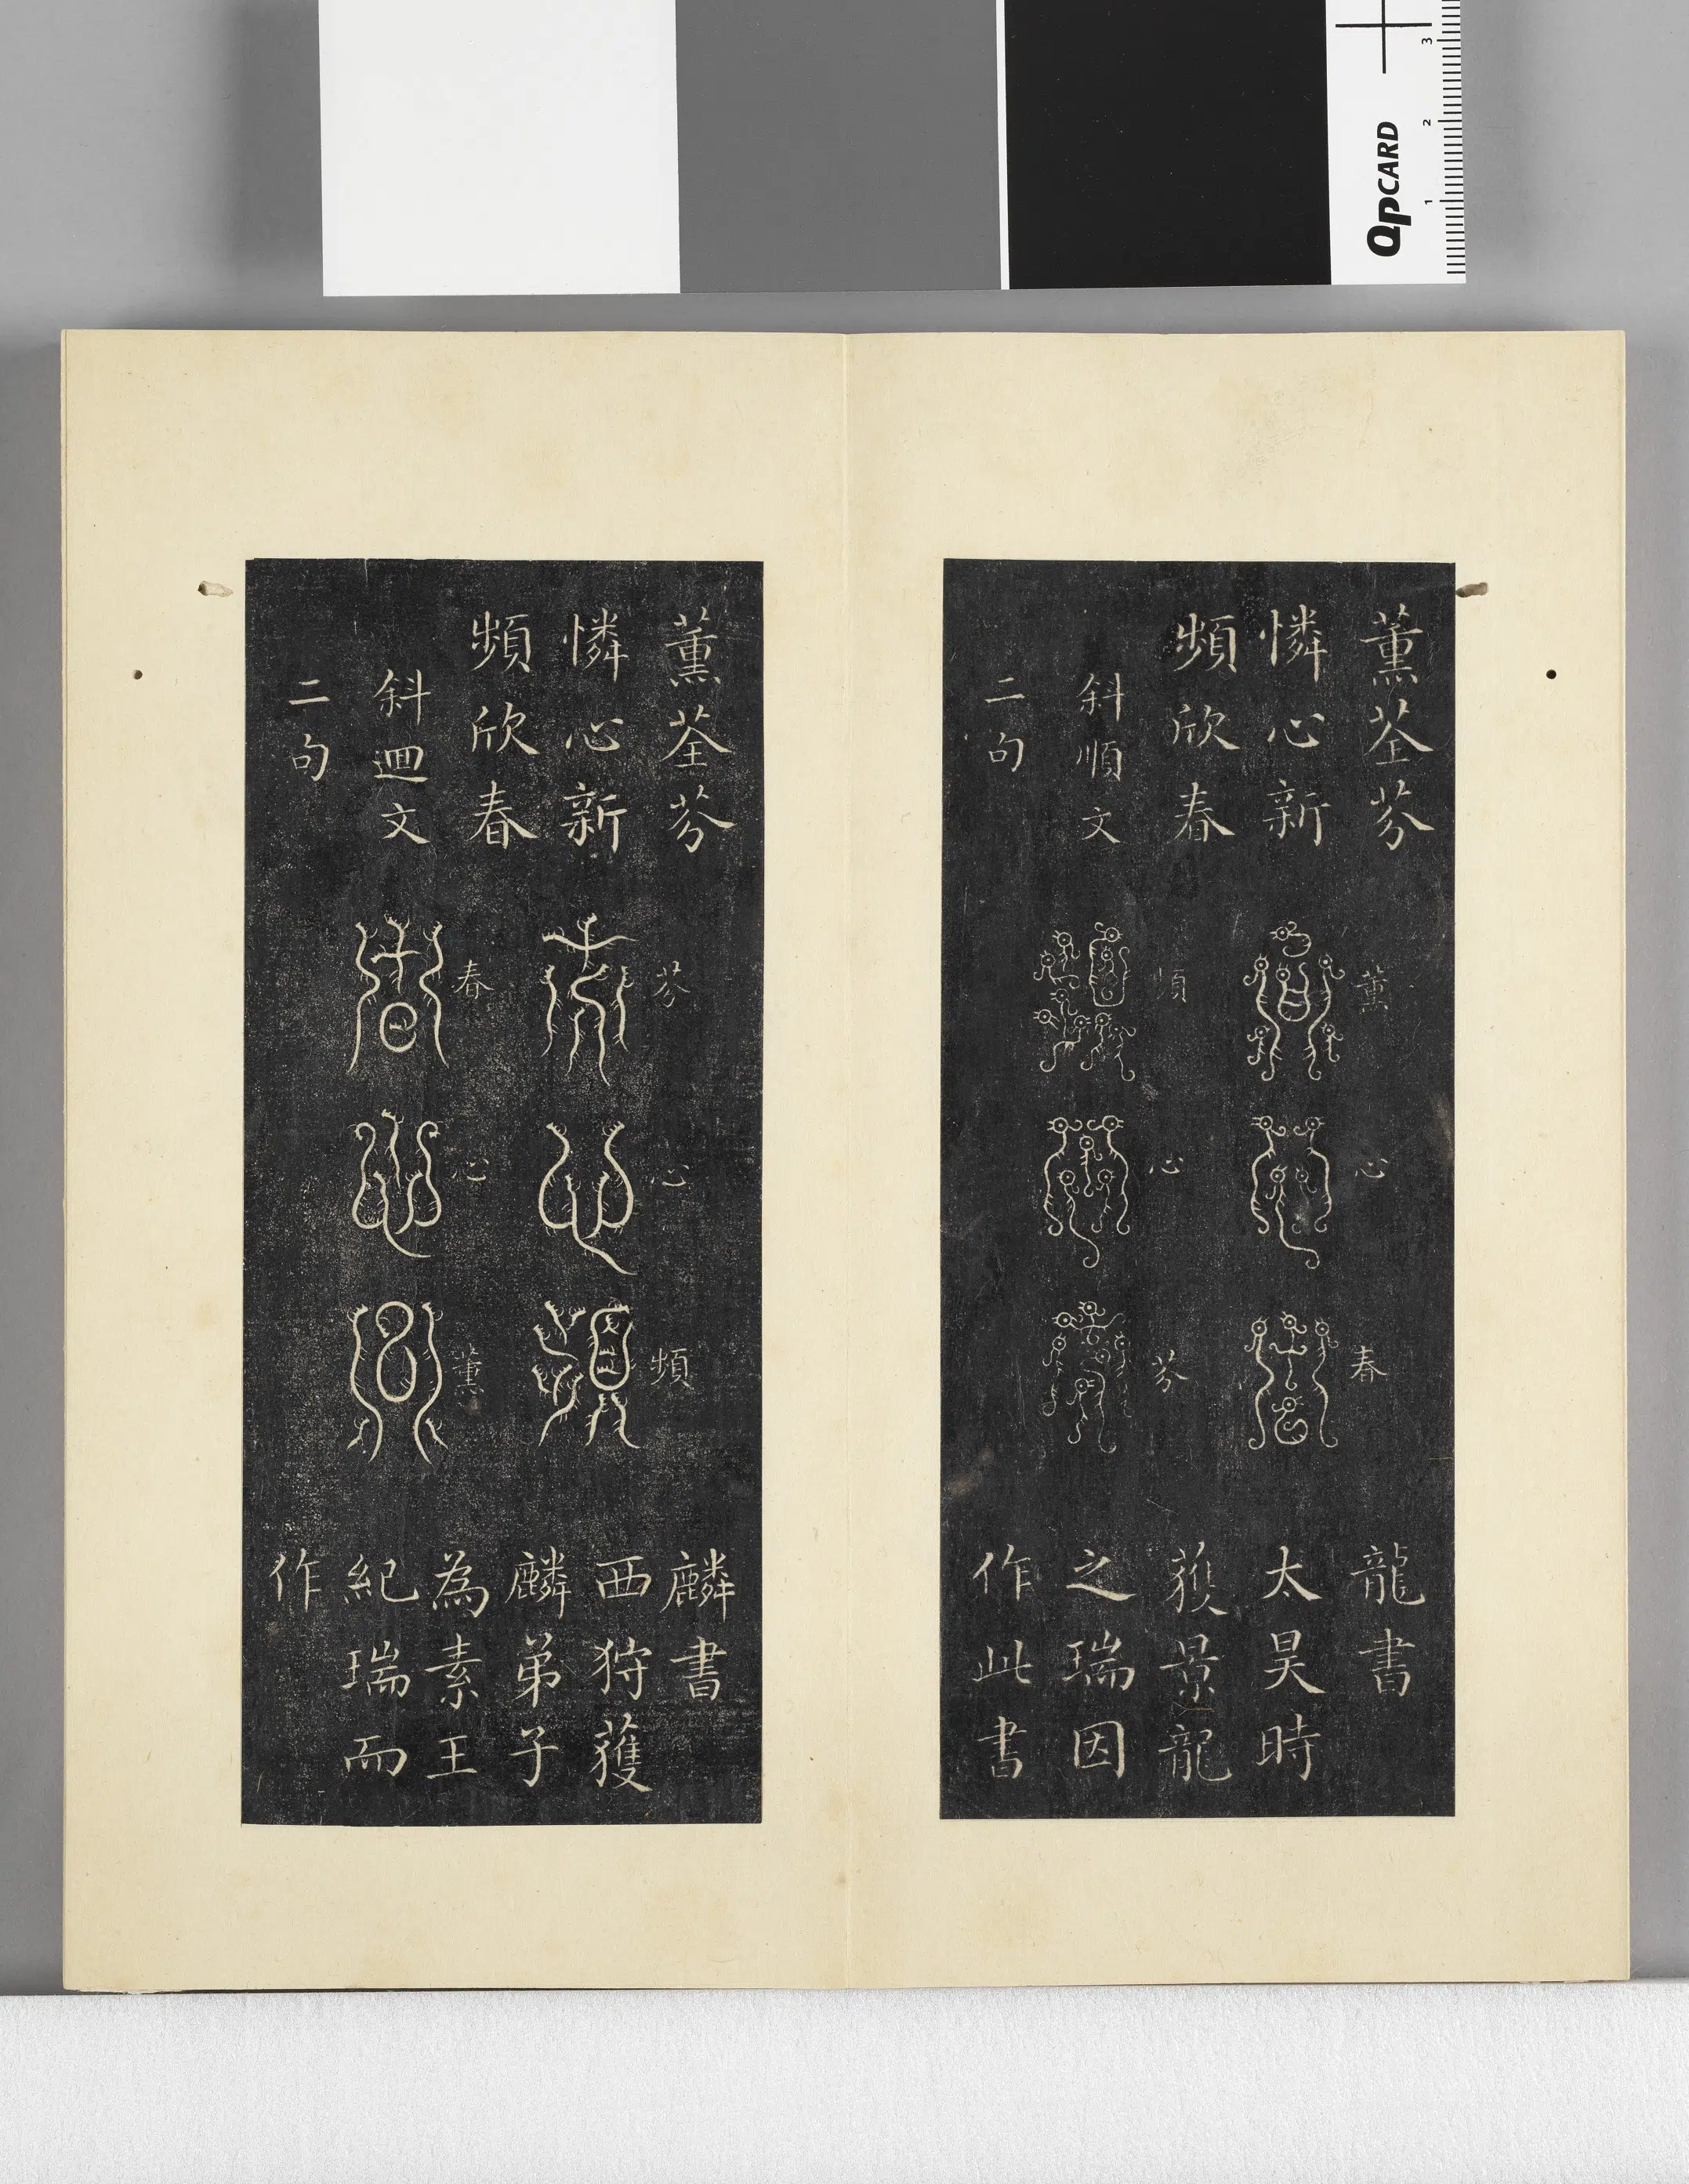 QPCARD
1
2
3
薰荃芬
憐心新
頻欣春
斜順文
二句
薰
心
春
頻
心
芬
龍書
太昊時
獲景龍
之瑞因
作此書
薰荃芬
憐心新
頻欣春
斜迴文
二句
芬
心
頻
春
心
薰
麟書
西狩獲
麟弟子
為素王
紀瑞而
作